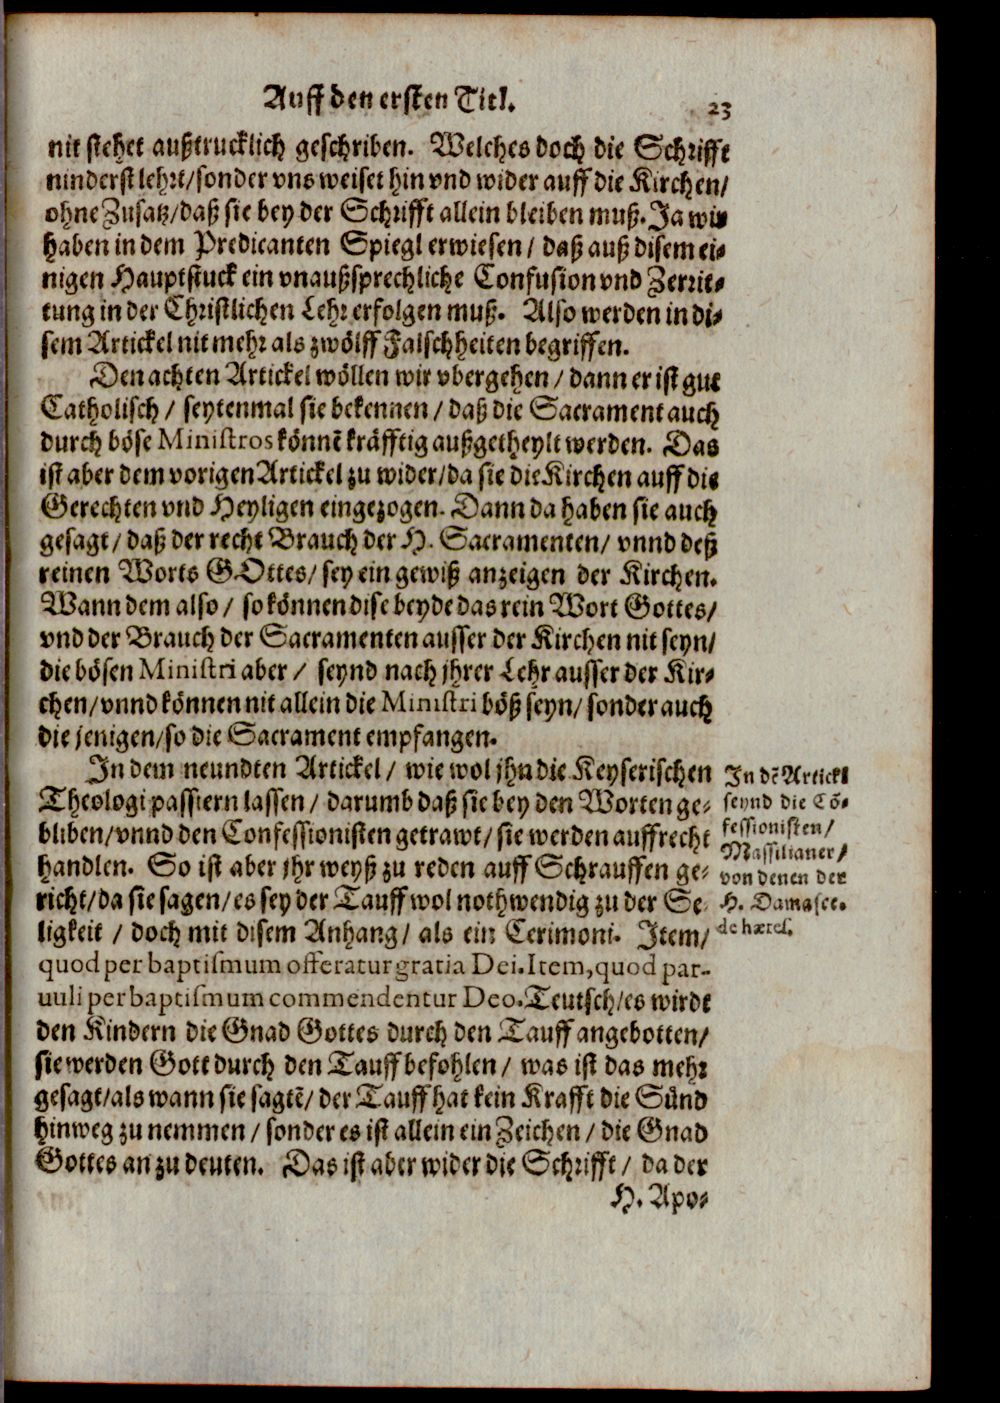 Auff den ersten Titl. 23
nit stehet außtrucklich geschriben. Welches doch die Schrifft
ninderst lehrt/sonder vns weiset hin vnd wider auff die Kirchen/
ohne Zusatz/daß sie bey der Schrifft allein bleiben muß. Ja wir
haben in dem Predicanten Spiegl erwiesen/ daß auß disem ei-
nigen Hauptstuck ein vnaußsprechliche Confusion vnd Zerrit-
tung in der Christlichen Lehr erfolgen muß. Also werden in di-
sem Artickel nit mehr als zwölff Falschheiten begriffen.
Den achten Artickel wöllen wir vbergehen/ dann er ist gut
Catholisch/ seytenmal sie bekennen/ daß die Sacrament auch
durch böse Ministros könnē kräfftig außgetheylt werden. Das
ist aber dem vorigen Artickel zu wider/da sie die Kirchen auff die
Gerechten vnd Heyligen eingezogen. Dann da haben sie auch
gesagt/ daß der recht Brauch der H. Sacramenten/ vnnd deß
reinen Worts GOttes/ sey ein gewiß anzeigen der Kirchen.
Wann dem also/ so können dise beyde das rein Wort Gottes/
vnd der Brauch der Sacramenten ausser der Kirchen nit seyn/
die bösen Ministri aber/ seynd nach jhrer Lehr ausser der Kir-
chen/vnnd können nit allein die Ministri böß seyn/ sonder auch
die jenigen/so die Sacrament empfangen.
In dem neundten Artickel/ wie wol jhn die Keyserischen
Theologi passiern lassen/ darumb daß sie bey den Worten ge-
bliben/vnnd den Confessionisten getrawt/ sie werden auffrecht
handlen. So ist aber jhr weyß zu reden auff Schrauffen ge-
richt/da sie sagen/es sey der Tauff wol nothwendig zu der Se-
ligkeit/ doch mit disem Anhang/ als ein Cerimoni. Item/
quod per baptismum offeratur gratia Dei. Item, quod par-
uuli per baptismum commendentur Deo. Teutsch/es wirdt
den Kindern die Gnad Gottes durch den Tauff angebotten/
sie werden Gott durch den Tauff befohlen/ was ist das mehr
gesagt/als wann sie sagtē/ der Tauff hat kein Krafft die Sünd
hinweg zu nemmen/ sonder es ist allein ein Zeichen/ die Gnad
Gottes an zu deuten. Das ist aber wider die Schrifft/ da der
H. Apo-
In dē Artickl
seynd die Cō-
fessionisten/
Massilianer/
von denen der
H. Damasce.
de hæres.